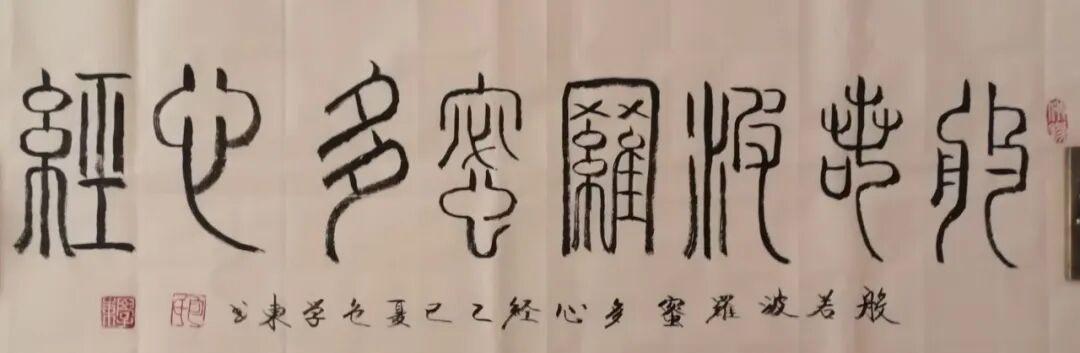 般若波羅蜜多心經
般若波羅蜜多心経乙巳夏包学東书
包
學東